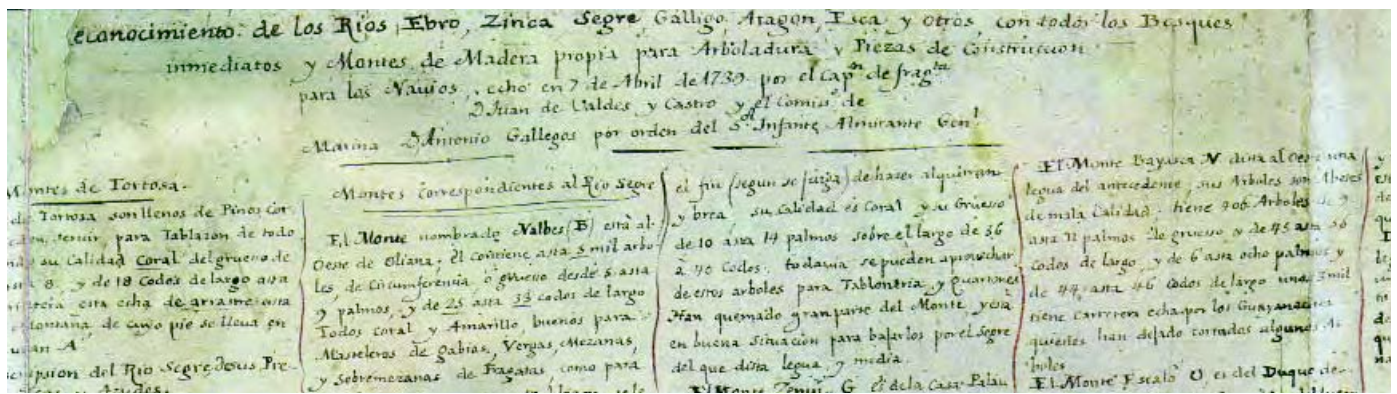 econocimiento de los Rios, Ebro, Zinca Segre, Gálligo, Aragon, Esca, y otros, con todos los Bosques
inmediatos y Montes de Madera propia para Arboladura y Piezas de Construccion
para los Navios, echo en 7 de Abril de 1739 por el Capn de fragta
D Juan de Valdes y Castro y el Comisº de
Marina D Antonio Gallegos por orden del Sor Infante Almirante Genl
Montes de Tortosa.
de Tortosa son llenos de Pinos
servir, para Tablazon de todo
su Calidad Coral del grueso de
8. y de 18 Codos de largo asta
esta echa de arrastre asta
montaña de cuyo pie se lleva en
A
del Rio Segre
Montes correspondientes al Rio Segre
El Monte nombrado Nalbes (B) està al
Oeste de Oliana; él contiene asta 5 mil arbo
les, de circumferencia, ò grueso desde 5 asta
9 palmos, y de 25 asta 33 codos de largo
Todos coral y Amarillo, buenos para
Masteleros de gabias, Vergas, Mezanas,
y sobremezanas de Fragatas, como para
el fin (segun se juzga) de hazer alquitran
y brea, su Calidad es Coral y su Grueso
de 10 asta 14 palmos sobre el largo de 36
à 40 Codos, todavia se pueden aprovechar
de estos arboles para Tabloneria, y Quartones
Han quemado gran parte del Monte, y està
en buena situacion para bajarlos por el Segre
del que dista legua, y media.
El Monte G. el de la Casa Palau
El Monte Bayasca N dista al Oeste una
legua del antecedente, sus Arboles son Abetes
de mala Calidad; tiene 906 Arboles de 9
asta 11 palmos de grueso y de 45 asta 56
Codos de largo, y de 6 asta ocho palmos y
de 44, asta 46 Codos de largo unos 3 mil
tiene Carretera echa por los
quienes han dejado cortados algunos Ar
boles
El Monte Escalo O, es del Duque de